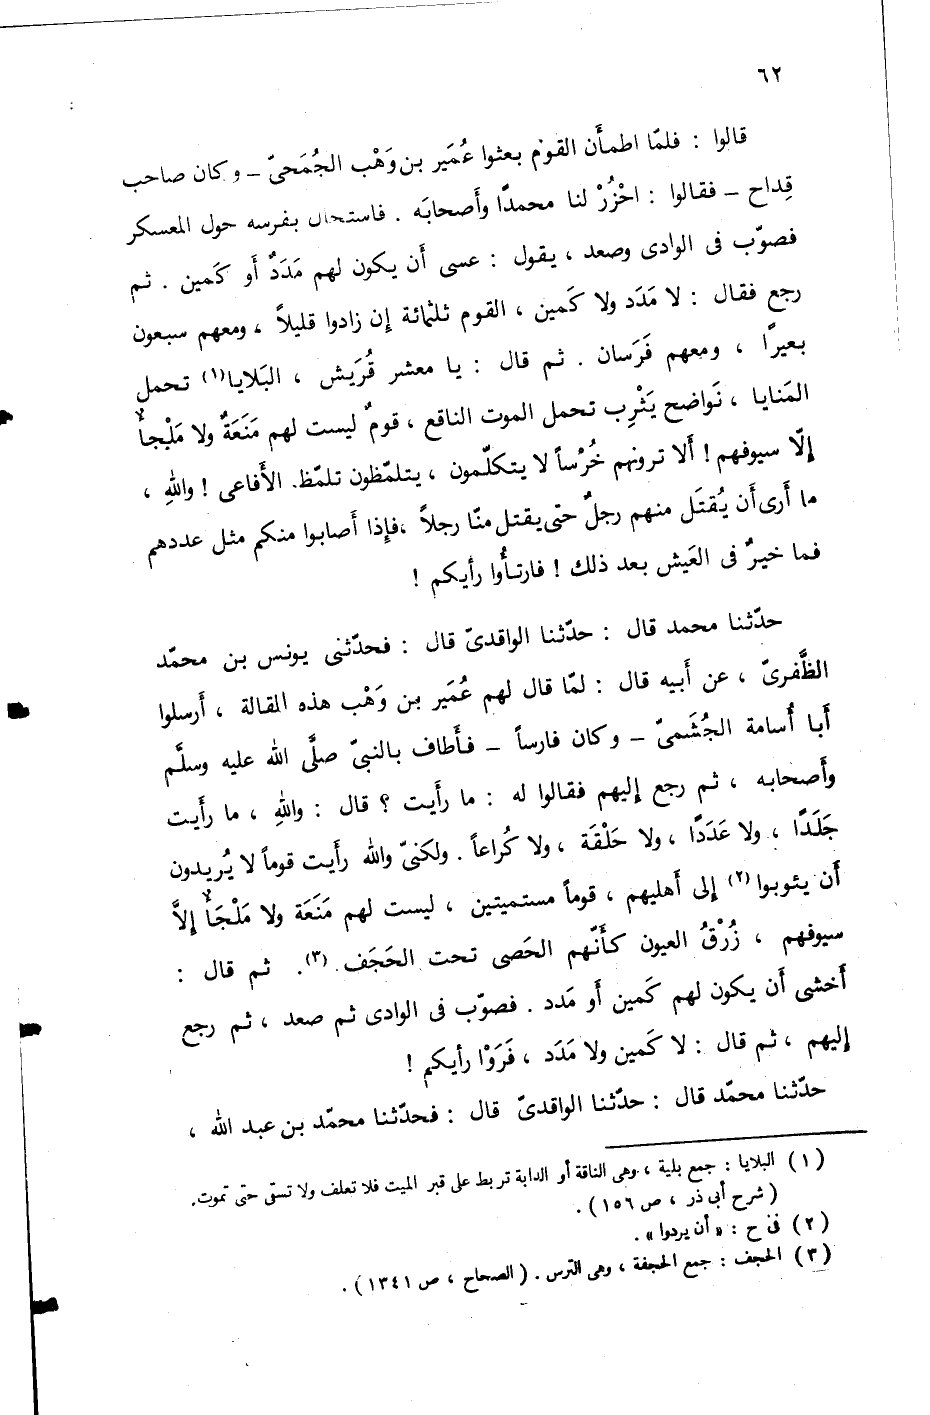 ٦٢
قالوا : فلمّا اطمأَن القوم بعثوا عُمَير بن وَهْب الجُمَحىّ – وكان صاحب
قِداح – فقالوا : احْزُرْ لنا محمدًا وأَصحابَه . فاستجال بفرسه حول المعسكر
فصوّب فى الوادى وصعد ، يقول : عسى أَن يكون لهم مَدَدٌ أَو كَمين . ثم
رجع فقال : لا مَدَد ولا كَمين ، القوم ثلثمائة إِن زادوا قليلاً ، ومعهم سبعون
بعيرًا ، ومعهم فَرَسان . ثم قال : يا معشر قُرَيش ، البَلايا(١) تحمل
المَنايا ، نَواضح يَثْرِب تحمل الموت الناقع ، قومٌ ليست لهم مَنَعَةٌ ولا مَلْجأٌ
إِلّا سيوفهم ! أَلا ترونهم خُرْساً لا يتكلّمون ، يتلمّظون تلمّظ الأَفاعى ! واللهِ ،
ما أَرى أَن يُقتَل منهم رجلٌ حتى يقتل منّا رجلاً ، فإِذا أَصابوا منكم مثل عددهم
فما خيرٌ فى العَيش بعد ذلك ! فارتأُوا رأيكم !
حدّثنا محمد قال : حدّثنا الواقدىّ قال : فحدّثنى يونس بن محمّد
الظَّفرىّ ، عن أَبيه قال : لمّا قال لهم عُمَير بن وَهْب هذه المقالة ، أَرسلوا
أَبا أُسامة الجُشَمىّ – وكان فارساً – فأَطاف بالنبىّ صلَّى الله عليه وسلَّم
وأَصحابه ، ثم رجع إِليهم فقالوا له : ما رأَيت ؟ قال : واللهِ ، ما رأَيت
جَلَدًا ، ولا عَدَدًا ، ولا حَلْقَة ، ولا كُراعاً . ولكنىّ والله رأَيت قوماً لا يُريدون
أَن يئوبوا(٢) إِلى أَهليهم ، قوماً مستميتين ، ليست لهم مَنَعَة ولا مَلْجَأٌ إِلاَّ
سيوفهم ، زُرْقُ العيون كأَنّهم الحَصى تحت الحَجَف (٣). ثم قال :
أَخشى أَن يكون لهم كَمين أَو مَدد . فصوّب فى الوادى ثم صعد ، ثم رجع
إِليهم ، ثم قال : لا كَمين ولا مَدَد ، فَرَوْا رأيكم !
حدّثنا محمّد قال : حدّثنا الواقدىّ قال : فحدّثنا محمّد بن عبد الله ،
(١) البلايا : جمع بلية ، وهى الناقة أو الدابة تربط على قبر الميت فلا تعلف ولا تسقى حتى تموت.
(شرح أبى ذر ، ص ١٥٦) .
(٢) فى ح : «أن يردوا» .
(٣) الحجف : جمع الحجفة ، وهى الترس . (الصحاح ، ص ١٣٤١) .